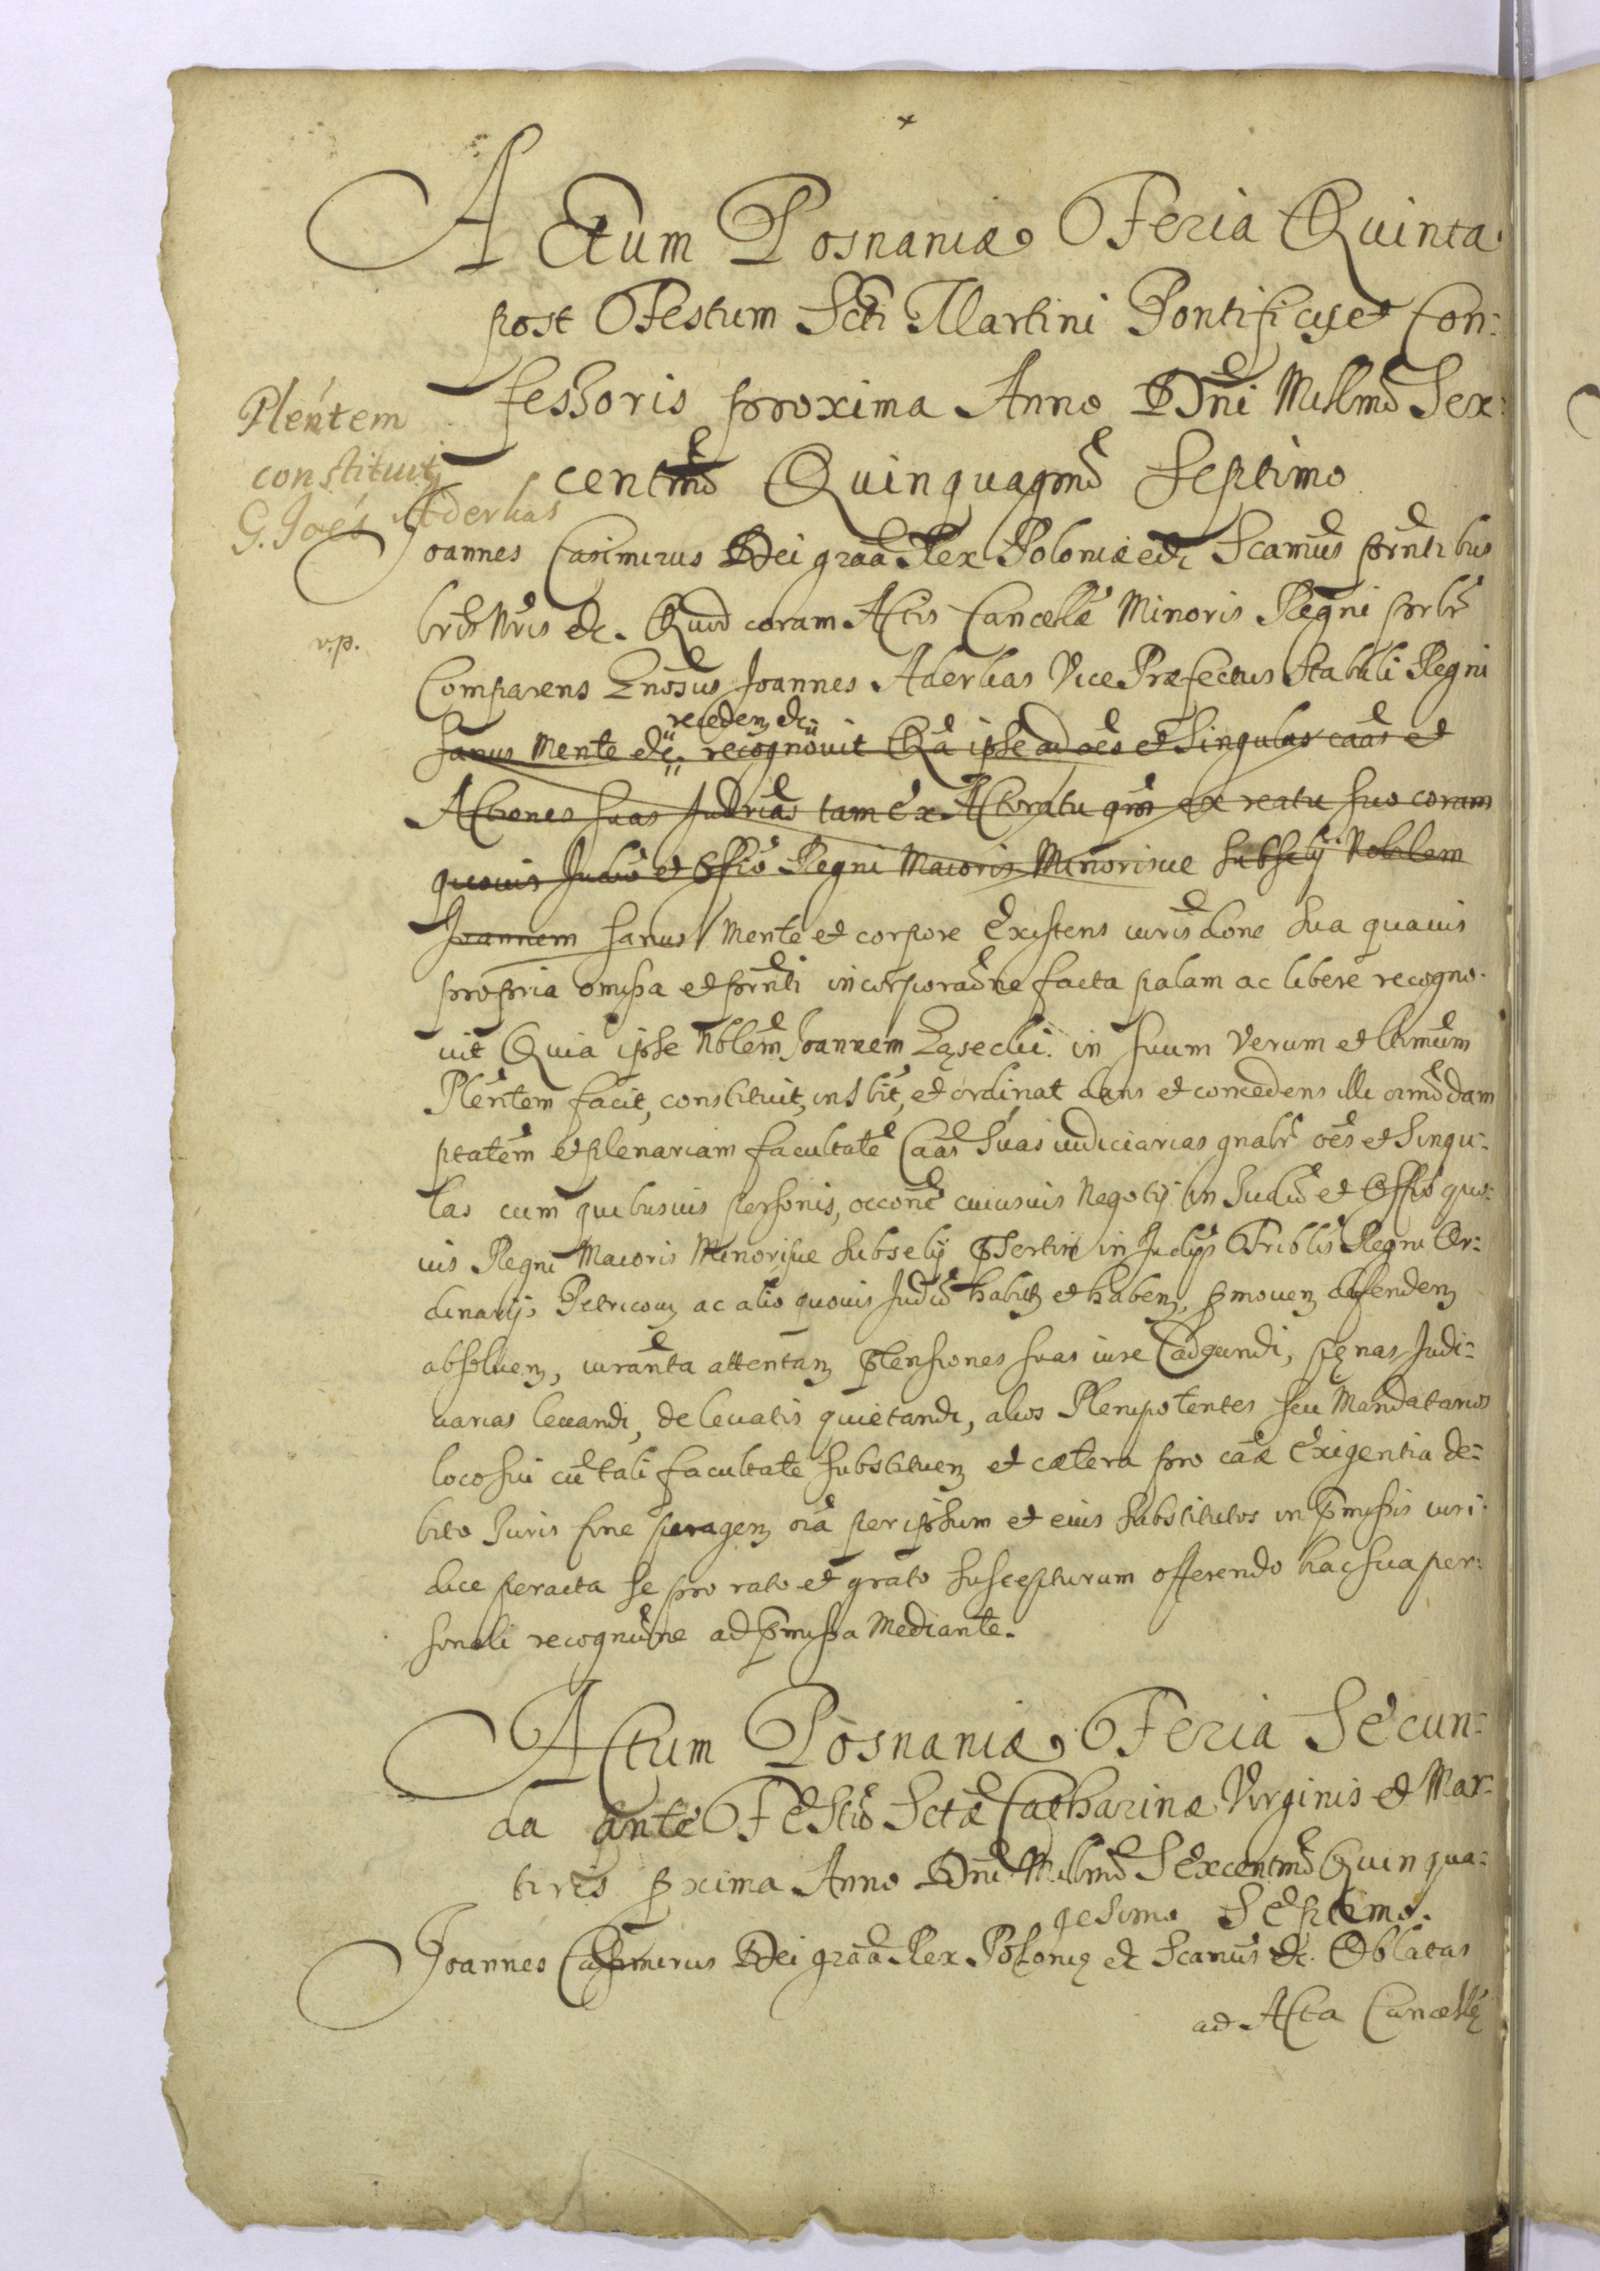 Actum Posnaniæ Feria Quinta
post Festum Scti Martini Pontificis et Con:
fessoris proxima Anno Dni Millmo Sex:
centmo Quinquagmo Septimo
Plentem
constituit
G. Joes Aderkas
Joannes Casimirus Dei graa Rex Poloniæ etc Scamus prntibus
v.p.
lris Nris etc. Quod coram Actis Cancellæ Minoris Regni prlr
Comparens Gnosus Joannes Aderkas Vice Præfectus Stabuli Regni
recedem etc
sanus Mente etc. recognovit Qa ipse ad oes et Singulas caas et
Actiones suas Judrias tam ex Actoratu qm ex reatu suo coram
quovis Judio et Offio Regni Maioris Minorisue Subselij Noblem
Joannem sanus Mente et corpore Existens iurisdone sua quavis
propria omissa et prnti incorporaone facta palam ac libere recogno:
uit Quia ipse Noblem Joannem in suum Verum et ltimum
Plentem facit, constituit, instit, et ordinat dans et concedens illi oimodam
ptatem et plenariam facultate Caas Suas iudiciarias gnalr oes et Singu:
las cum quibusuis personis, occone cuiusuis Negotij in Judio et Offio quo:
uis Regni Maioris Minorisue Subselij psertim in Judijs Triblis Regni Or:
dinarijs Petricouien ac alio quouis Judio habit et haben, pmouen defenden
absoluen, iuranta attentan ptensiones suas iure, pęnas Judi:
iarias leuandi, de leuatis quietandi, alios Plenipotentes seu Mandatarios
loco sui cu tali facultate substituen et cætera pro caæ Exigentia de:
bito Juris fine peragen oia per ipsum et eius substitutos in pmissis iuri:
dice peracta se pro rato et grato suscepturum offerendo hac sua per:
sonali recognione ad pmissa Mediante.
Actum Posnaniæ Feria Secun:
da ante Festu Sctæ Catharinæ Virginis et Mar:
tiris pxima Anno Dni Millmo Sexcentmo Quinqua:
gesimo Septimo.
Joannes Casimirus Dei graa Rex Polonię etc Scamus etc. Oblatas
ad Acta Cancellę